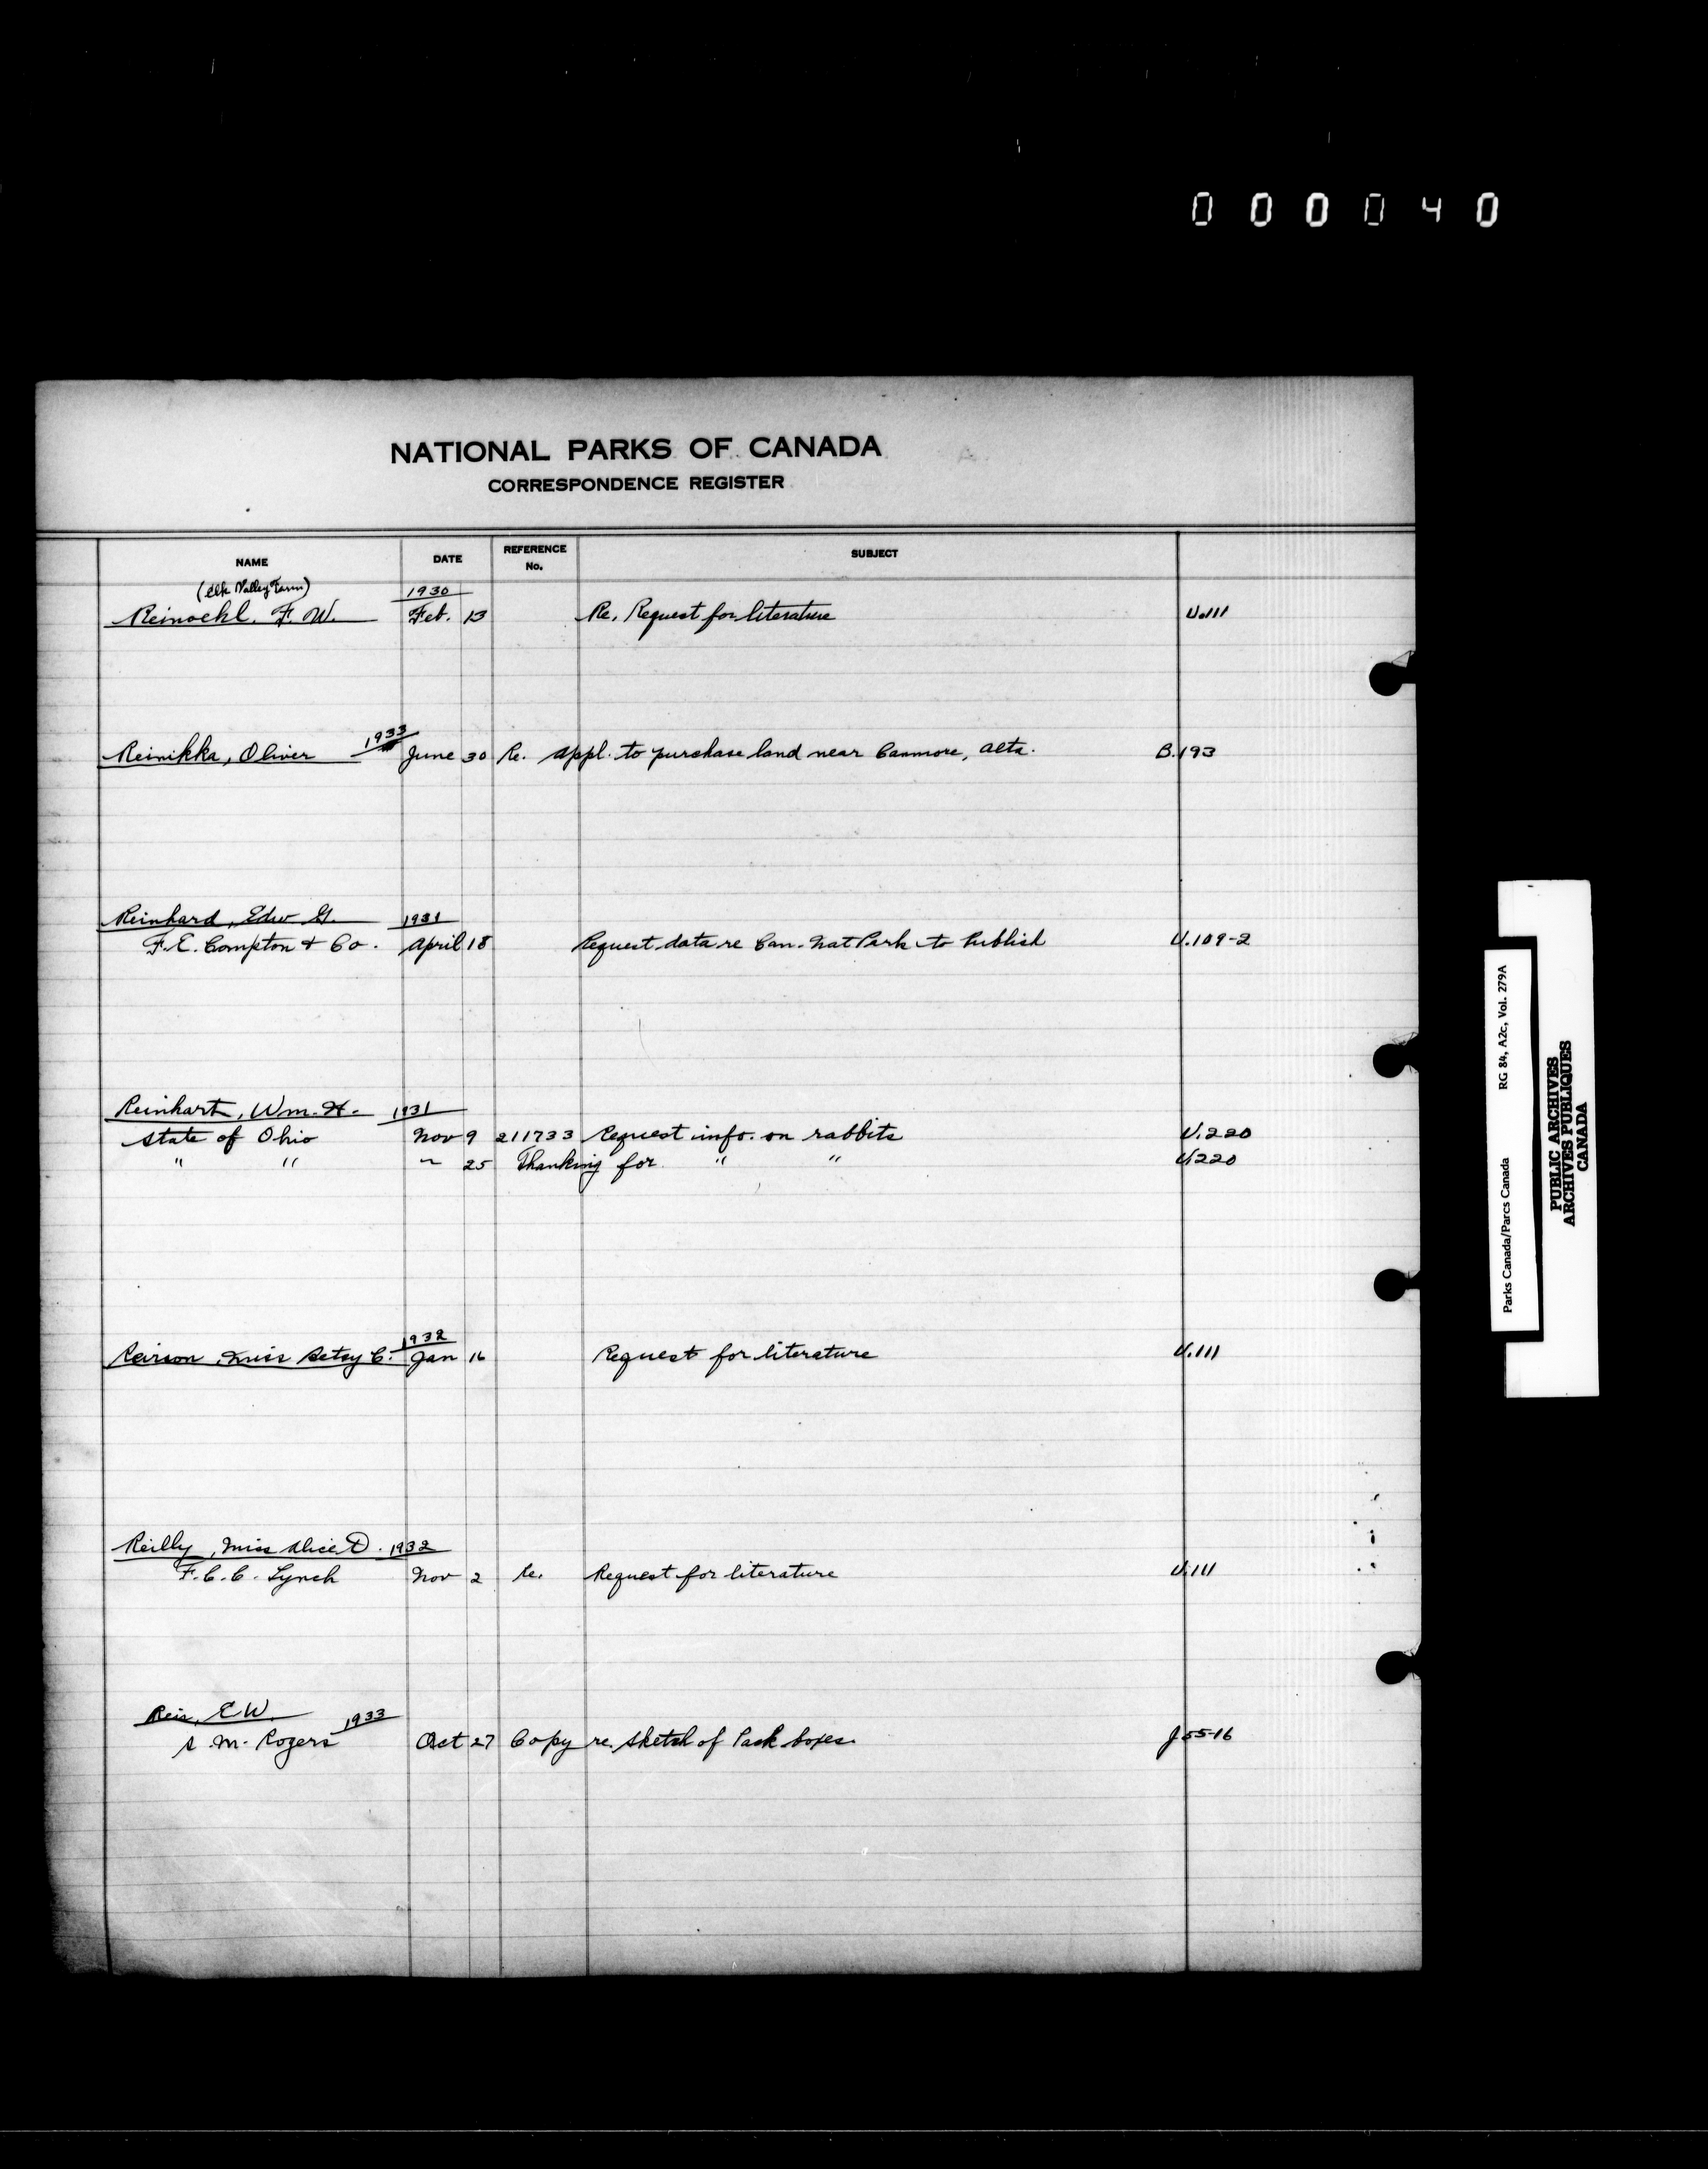 000040
NATIONAL PARKS OF CANADA
CORRESPONDENCE REGISTER
NAME DATE REFERENCE No. SUBJECT
(Elk Valley Farm) 1930
Reinoehl, F. W. Feb. 13 Re. Request for literature U.111
Reinikka, Oliver 1933 June 30 Re. appl. to purchase land near Canmore, Alta. B.193
Reinhard, Edw G. 1931
F. E. Compton & Co. April 18 Request data re Can. Nat Park to Publish U.109-2
Reinhart, Wm. H. 1931
State of Ohio Nov 9 211733 Request info. on rabbits U.220
" " " 25 Thanking for " " U.220
Reirson, Miss Betsy C. 1932 Jan 16 Request for literature U.111
Reilly, Miss Alice D. 1932
F. C. C. Lynch Nov 2 Re. Request for literature U.111
Reis, E W. 1933
S. M. Rogers Oct 27 Copy re. sketch of Pack boxes. J 55-16
Parks Canada/Parcs Canada RG 84, A2c, Vol. 279A
PUBLIC ARCHIVES
ARCHIVES PUBLIQUES
CANADA